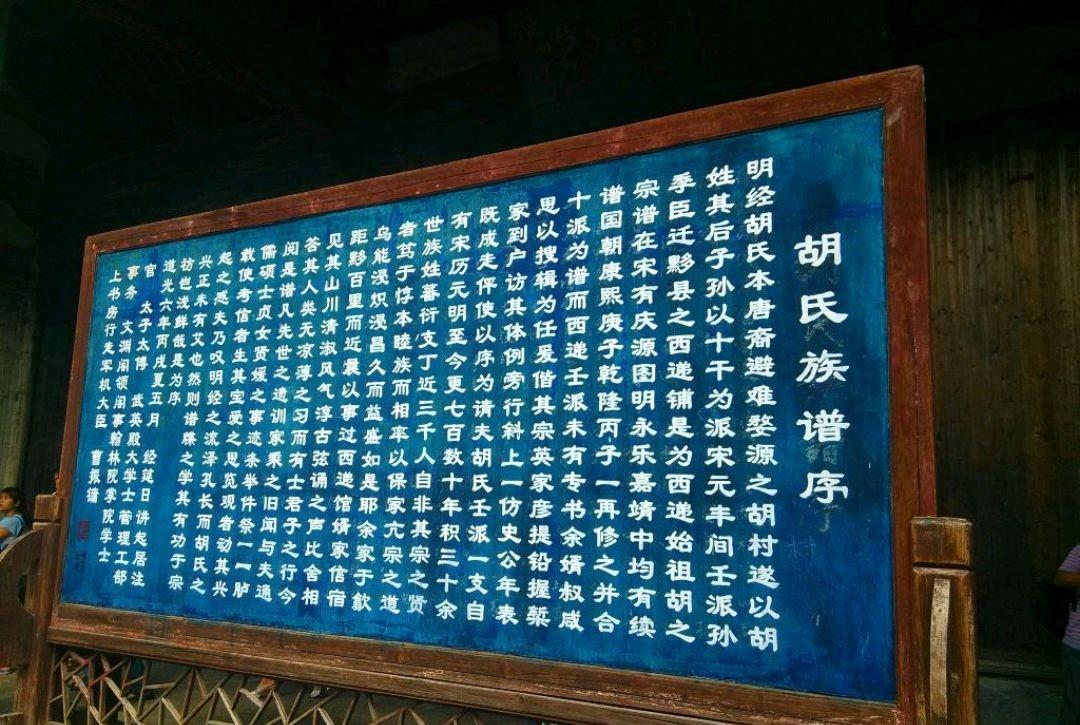 胡氏族谱序
明经胡氏本唐裔避难婺源之胡村遂以胡
姓其后子孙以十干为派宋元丰间壬派孙
季臣迁黟县之西递铺是为西递始祖胡之
宗谱在宋有庆源图明永乐嘉靖中均有续
谱国朝康熙庚子乾隆丙子一再修之并合
十派为谱而西递壬派未有专书余婿叔咸
思以搜辑为任爰偕其宗英家彦提铅握椠
家到户访其体例旁行斜上一仿史公年表
既成走伻使以序为请夫胡氏壬派一支自
有宋历元明至今更七百数十年积三十余
世族姓蕃衍支丁近三千人自非其宗之贤
者笃于惇本睦族而相率以保家亢宗之道
乌能浸炽浸昌久而益盛如是耶余家于歙
距黟百里而近曩以事过西递馆婿家信宿
见其山川清淑风气淳古弦诵之声比舍相
答其人类无凉薄之习而有士君子之行今
阅是谱凡先世之遗训家乘之旧闻与夫通
儒硕士贞女贤媛之事迹条举件系一一胪
载使考信者生其宝爱之思览观者动其兴
起之感夫乃叹明经之流泽孔长而胡氏之
兴正未有艾也然则谱牒之学其有功于宗
祊也浅鲜哉是为序
道光六年丙戌夏五月 经筵日讲起居注
官 太子太傅 武英殿大学士管理工部
事务 文渊阁领阁事翰林院掌院学士
上书房行走军机大臣 曹振镛